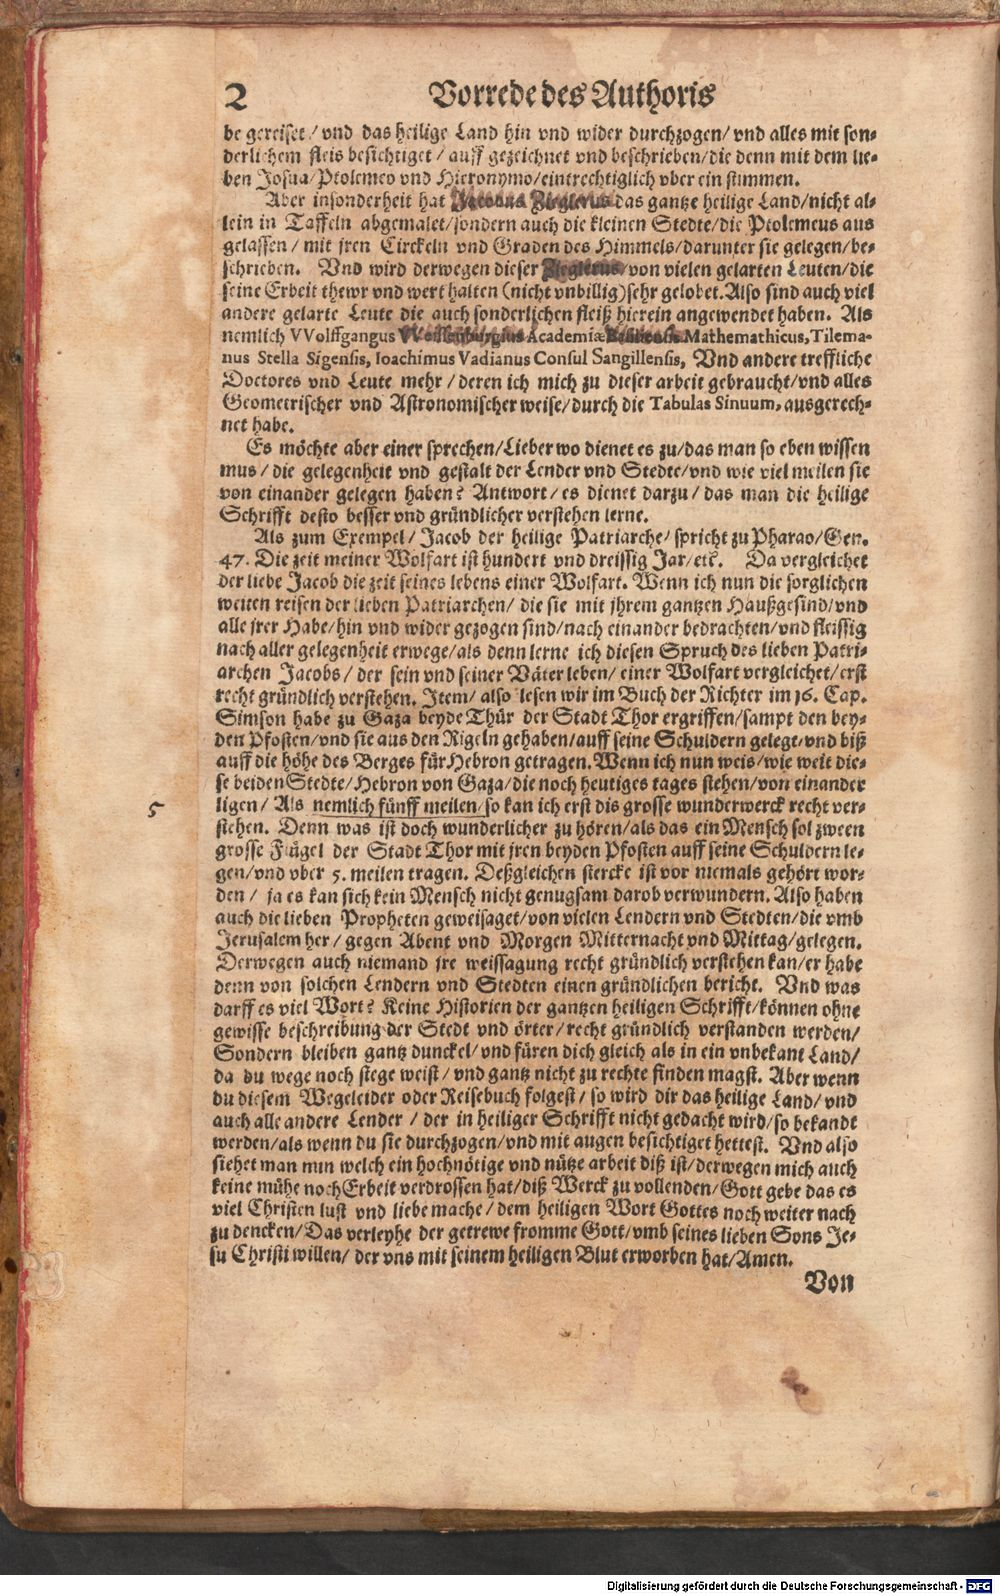 2 Vorrede des Authoris
be gereiset / vnd das heilige Land hin vnd wider durchzogen / vnd alles mit son-
derlichem fleis besichtiget / auff gezeichnet vnd beschrieben / die denn mit dem lie-
ben Josua / Ptolemeo vnd Hieronymo / eintrechtiglich vber ein stimmen.
Aber insonderheit hat Jacobus Zieglerus das gantze heilige Land / nicht al-
lein in Taffeln abgemalet / sondern auch die kleinen Stedte / die Ptolemeus aus
gelassen / mit jren Circkeln vnd Graden des Himmels / darunter sie gelegen / be-
schrieben. Vnd wird derwegen dieser Zieglerus / von vielen gelarten Leuten / die
seine Erbeit thewr vnd wert halten (nicht vnbillig) sehr gelobet. Also sind auch viel
andere gelarte Leute die auch sonderlichen fleiß hierein angewendet haben. Als
nemlich VVolffgangus VVeissenburgius Academiæ Basiliensis Mathemathicus, Tilema-
nus Stella Sigensis, Ioachimus Vadianus Consul Sangillensis, Vnd andere treffliche
Doctores vnd Leute mehr / deren ich mich zu dieser arbeit gebraucht / vnd alles
Geometrischer vnd Astronomischer weise / durch die Tabulas Sinuum, ausgerech-
net habe.
Es möchte aber einer sprechen / Lieber wo dienet es zu / das man so eben wissen
mus / die gelegenheit vnd gestalt der Lender vnd Stedte / vnd wie viel meilen sie
von einander gelegen haben? Antwort / es dienet darzu / das man die heilige
Schrifft desto besser vnd gründlicher verstehen lerne.
Als zum Exempel / Jacob der heilige Patriarche / spricht zu Pharao / Gen.
47. Die zeit meiner Wolfart ist hundert vnd dreissig Jar / etc. Da vergleichet
der liebe Jacob die zeit seines lebens einer Wolfart. Wenn ich nun die sorglichen
weiten reisen der lieben Patriarchen / die sie mit jhrem gantzen Haußgesind / vnd
alle jrer Habe / hin vnd wider gezogen sind / nach einander bedrachten / vnd fleissig
nach aller gelegenheit erwege / als denn lerne ich diesen Spruch des lieben Patri-
archen Jacobs / der sein vnd seiner Väter leben / einer Wolfart vergleichet / erst
recht gründlich verstehen. Item / also lesen wir im Buch der Richter im 16. Cap.
Simson habe zu Gaza beyde Thür der Stadt Thor ergriffen / sampt den bey-
den Pfosten / vnd sie aus den Rigeln gehaben / auff seine Schuldern gelegt / vnd biß
auff die höhe des Berges für Hebron getragen. Wenn ich nun weis / wie weit die-
se beiden Stedte / Hebron von Gaza / die noch heutiges tages stehen / von einander
5 ligen / Als nemlich fünff meilen / so kan ich erst dis grosse wunderwerck recht ver-
stehen. Denn was ist doch wunderlicher zu hören / als das ein Mensch sol zween
grosse Flügel der Stadt Thor mit jren beyden Pfosten auff seine Schuldern le-
gen / vnd vber 5. meilen tragen. Deßgleichen stercke ist vor niemals gehört wor-
den / ja es kan sich kein Mensch nicht genugsam darob verwundern. Also haben
auch die lieben Propheten geweisaget / von vielen Lendern vnd Stedten / die vmb
Jerusalem her / gegen Abent vnd Morgen Mitternacht vnd Mittag / gelegen.
Derwegen auch niemand jre weissagung recht gründlich verstehen kan / er habe
denn von solchen Lendern vnd Stedten einen gründlichen bericht. Vnd was
darff es viel Wort? Keine Historien der gantzen heiligen Schrifft / können ohne
gewisse beschreibung der Stedt vnd örter / recht gründlich verstanden werden /
Sondern bleiben gantz dunckel / vnd füren dich gleich als in ein vnbekant Land /
da du wege noch stege weist / vnd gantz nicht zu rechte finden magst. Aber wenn
du diesem Wegeleider oder Reisebuch folgest / so wird dir das heilige Land / vnd
auch alle andere Lender / der in heiliger Schrifft nicht gedacht wird / so bekandt
werden / als wenn du sie durchzogen / vnd mit augen besichtiget hettest. Vnd also
siehet man nun welch ein hochnötige vnd nütze arbeit diß ist / derwegen mich auch
keine mühe noch Erbeit verdrossen hat / diß Werck zu vollenden / Gott gebe das es
viel Christen lust vnd liebe mache / dem heiligen Wort Gottes noch weiter nach
zu dencken / Das verleyhe der getrewe fromme Gott / vmb seines lieben Sons Je-
su Christi willen / der vns mit seinem heiligen Blut erworben hat / Amen.
Von
Digitalisierung gefördert durch die Deutsche Forschungsgemeinschaft - DFG